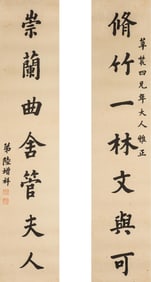 脩竹一林文與可
崇蘭曲舍管夫人
四兄年大人雅正
弟陸增祥